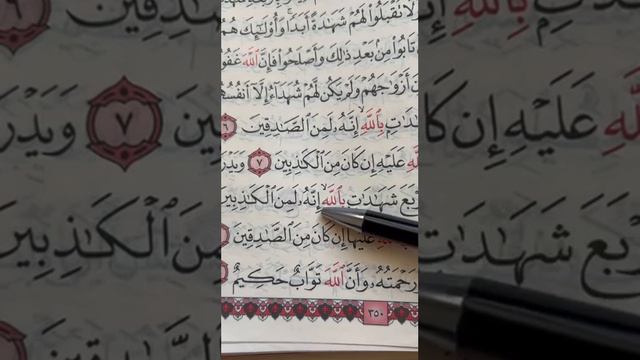 لَا تَقْبَلُوا۟ لَهُمْ شَهَٰدَةً أَبَدًا ۚ وَأُو۟لَٰٓئِكَ هُمُ
تَابُوا۟ مِنۢ بَعْدِ ذَٰلِكَ وَأَصْلَحُوا۟ فَإِنَّ ٱللَّهَ
أَزْوَٰجَهُمْ وَلَمْ يَكُن لَّهُمْ شُهَدَآءُ إِلَّآ
بِٱللَّهِ ۙ إِنَّهُۥ لَمِنَ ٱلصَّٰدِقِينَ ٦
عَلَيْهِ إِن كَانَ مِنَ ٱلْكَٰذِبِينَ ٧ وَيَدْرَ
بَعَ شَهَٰدَٰتٍۭ بِٱللَّهِ ۙ إِنَّهُۥ لَمِنَ ٱلْكَٰذِبِينَ
عَلَيْهَآ إِن كَانَ مِنَ ٱلصَّٰدِقِينَ
رَحْمَتُهُۥ وَأَنَّ ٱللَّهَ تَوَّابٌ حَكِيمٌ
٣٥٠